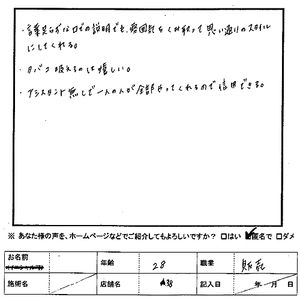 ・言葉足らずな口での説明でも、意図を
くみ取って思い通りのスタイル
にしてくれる。
・タバコ吸えるのは嬉しい。
・アシスタント無しで一人の人が全部やってくれるので信用できる。
※ あなた様の声を、ホームページなどでご紹介してもよろしいですか？ □はい ☑匿名で □ダメ
お名前 年齢 28 職業 販売
施術名 店舗名 記入日 年 月 日